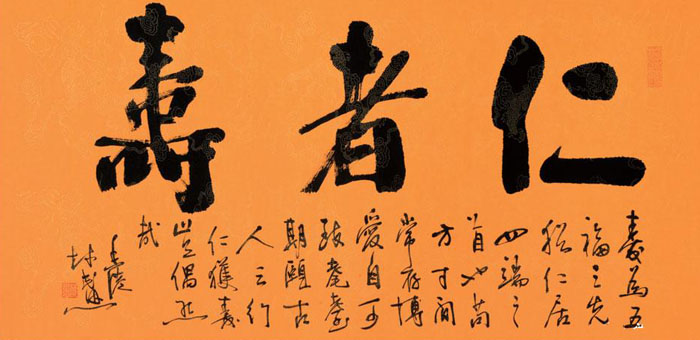 仁者壽
壽為五
福之先
仁居
四端之
首也苟
方寸間
常存博
愛自可
致耄耋
期頤古
人云行
仁獲壽
豈偶然
哉